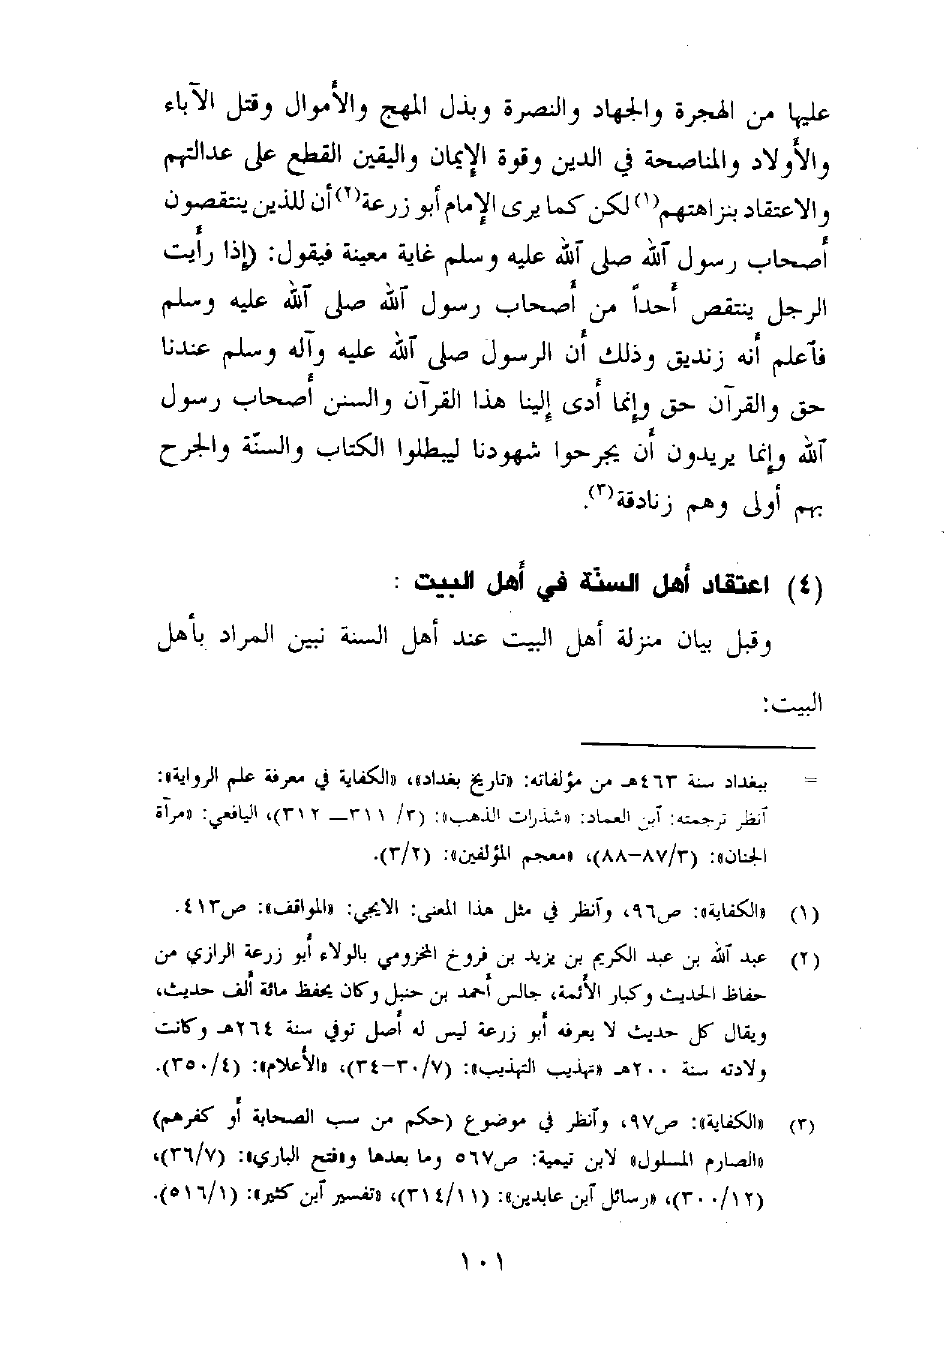 عليها من الهجرة والجهاد والنصرة وبذل المهج والأموال وقتل الآباء
والأولاد والمناصحة في الدين وقوة الإيمان واليقين القطع على عدالتهم
والاعتقاد بنزاهتهم(١) لكن كما يرى الإمام أبو زرعة(٢) أن للذين ينتقصون
أصحاب رسول ٱلله صلى ٱلله عليه وسلم غاية معينة فيقول: (إذا رأيت
الرجل ينتقص أحداً من أصحاب رسول ٱلله صلى ٱلله عليه وسلم
فٱعلم أنه زنديق وذلك أن الرسول صلى ٱلله عليه وآله وسلم عندنا
حق والقرآن حق وإنما أدى إلينا هذا القرآن والسنن أصحاب رسول
ٱلله وإنما يريدون أن يجرحوا شهودنا ليبطلوا الكتاب والسنّة والجرح
بهم أولى وهم زنادقة(٣).
(٤) اعتقاد أهل السنّة في أهل البيت :
وقبل بيان منزلة أهل البيت عند أهل السنة نبين المراد بأهل
البيت:
= ببغداد سنة ٤٦٣هـ من مؤلفاته: «تاريخ بغداد»، «الكفاية في معرفة علم الرواية»:
ٱنظر ترجمته: ٱبن العماد: «شذرات الذهب»: (٣/ ٣١١ــ ٣١٢)، اليافعي: «مرآة
الجنان»: (٨٧/٣–٨٨)، «معجم المؤلفين»: (٣/٢).
(١) «الكفاية»: ص٩٦، وٱنظر في مثل هذا المعنى: الايجي: «المواقف»: ص٤١٣.
(٢) عبد ٱلله بن عبد الكريم بن يزيد بن فروخ المخزومي بالولاء أبو زرعة الرازي من
حفاظ الحديث وكبار الأئمة، جالس أحمد بن حنبل وكان يحفظ مائة ألف حديث،
ويقال كل حديث لا يعرفه أبو زرعة ليس له أصل توفي سنة ٢٦٤هـ وكانت
ولادته سنة ٢٠٠هـ «تهذيب التهذيب»: (٣٠/٧–٣٤)، «الأعلام»: (٣٥٠/٤).
(٣) «الكفاية»: ص٩٧، وٱنظر في موضوع (حكم من سب الصحابة أو كفرهم)
«الصارم المسلول» لابن تيمية: ص٥٦٧ وما بعدها و«فتح الباري»: (٣٦/٧)،
(٣٠٠/١٢)، «رسائل ٱبن عابدين»: (٣١٤/١١)، «تفسير ٱبن كثير»: (٥١٦/١).
١٠١